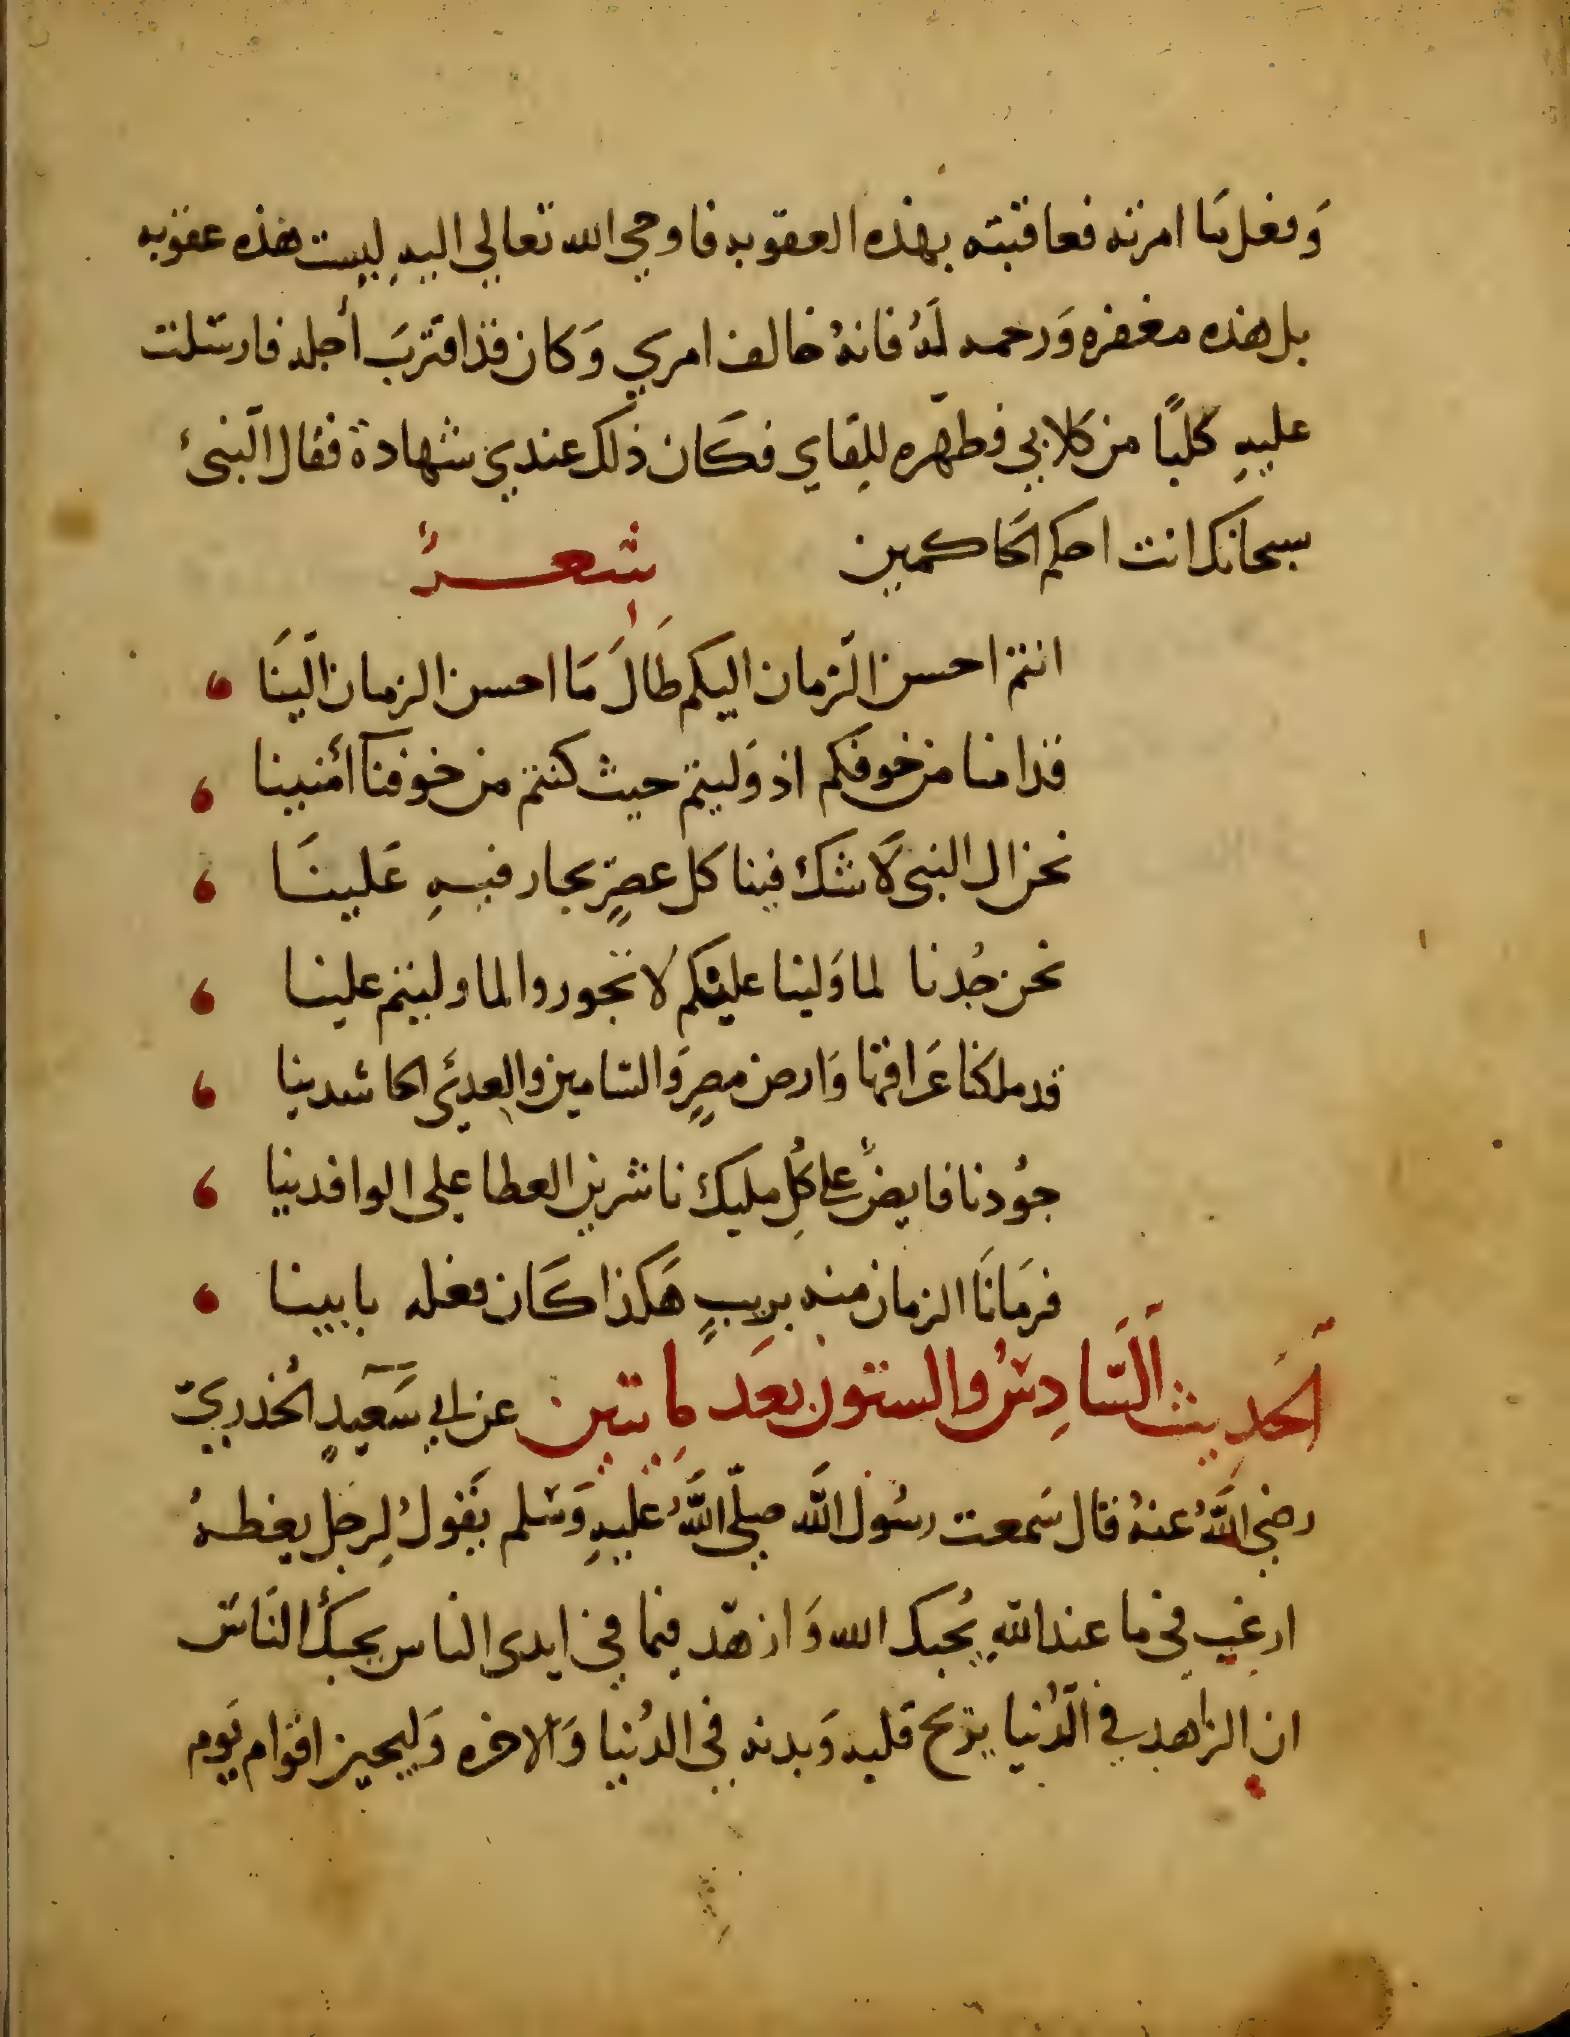 وفعل ما امرته فعاقبته بهذه العقوبه فاوحي الله تعالي اليه ليست هذه عقوبه
بل هذه مغفره وَرحمه لَهُ فانهُ خالف امري وَكان قد اقتربَ أجله فارسلت
عليهِ كلبًا من كلابي فطهّره للِقاي فكَان ذلك عندي شهادة فقال النّبىُ
سبحانك انت احكم الحَاكمين شعرُ
انتم احسن الزّمان اليكم طَالَ مَا احسن الزمان الَينَا
قد امنا من خوفكم اذ وَليتم حيث كنتم من خوفنآ أمنينا
نحن ال النبى لَا شك فينا كل عصرٍ يجار فيهِ عَلينَا
نحن جُدنا لما وَلينا عليكم لا تجوروا لما وليتم علينا
قد ملكنا عَراقها وَارض مصرٍ وَالشامين والعدىَ الحاسدينا
جوُدنا فايضً علي كُلِ مليك ناشرين العطا على الوافدينا
فرمَانَا الزمان منه بريبٍ هَكذا كَان فعله بابينا
اَلحَدِيث السَّادِسُ والستون بعدَ لمِايتين عن ابي سَعيدٍ الخُدريّ
رضي اللَّهُ عنهُ قال سَمعت رسُول اللَّه صلّي اللَّهُ عليهِ وَسلم يَقول لِرجل يعظهُ
ارغب في ما عند اللّهِ يُحبك الله وَازهّد فيما في ايدى الناس يحبك النَاسَ
ان الزاهد في الدُّنيا يريح قلبه وَبدنه في الدُنيا وَالاخره وَليجيز اقوام يَوم